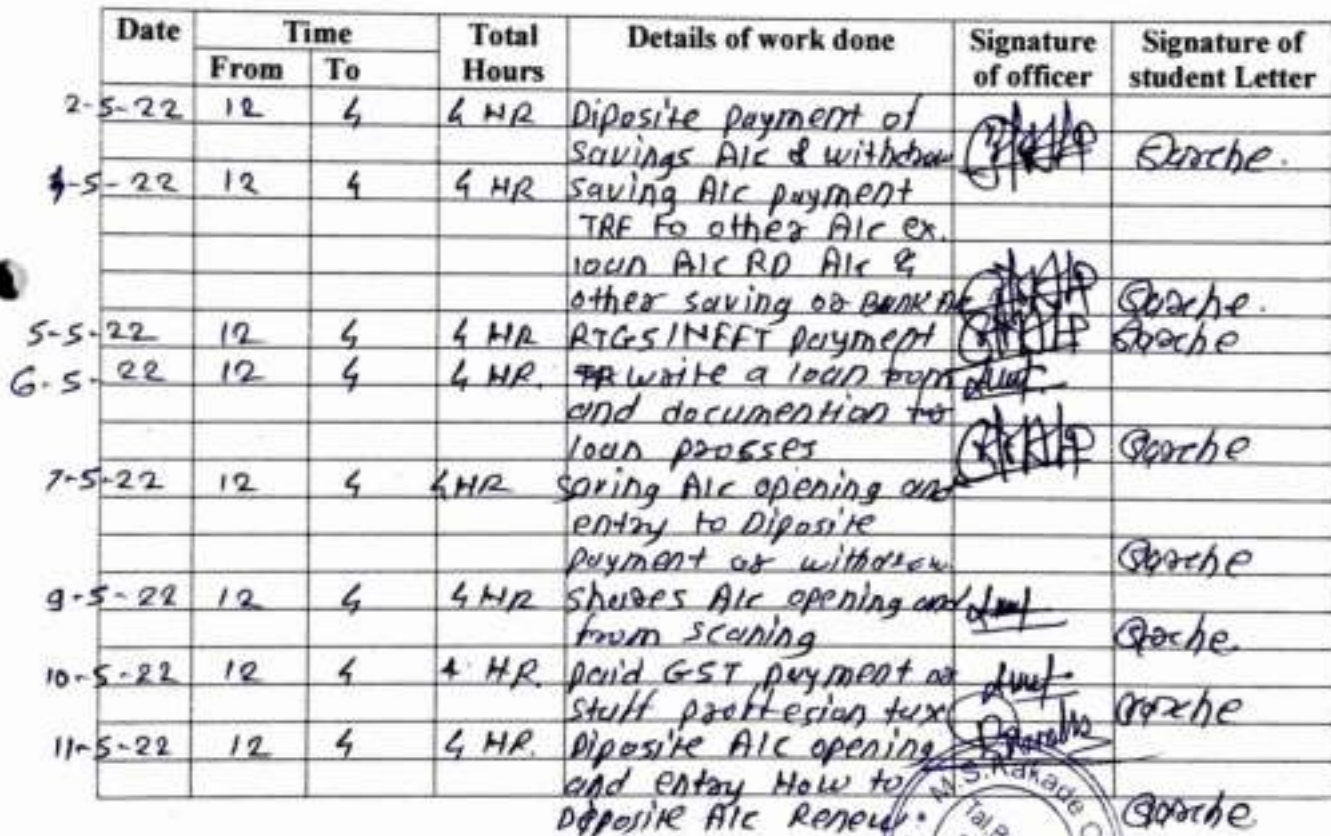 Date Time Total Hours Details of work done Signature of officer Signature of student Letter
From To
2-5-22 12 4 4 HR Diposite payment of
savings A/c & withdraw
4-5-22 12 4 4 HR saving A/c payment
TRF to other A/c ex.
loan A/c RD A/c &
other saving or BANK A/c
5-5-22 12 4 4 HR RTGS/NEFT payment
6-5-22 12 4 4 HR. write a loan form
and documention for
loan prosses
7-5-22 12 4 4HR saving A/c opening and
entry to Diposite
payment or withdrow
9-5-22 12 4 4 HR shares A/c opening and
from scaning
10-5-22 12 4 4 HR. paid GST payment or
staff proffesion tax
11-5-22 12 4 4 HR. Diposite A/c opening
and entry How to
Diposite A/c Renew.
M.S. Kakade